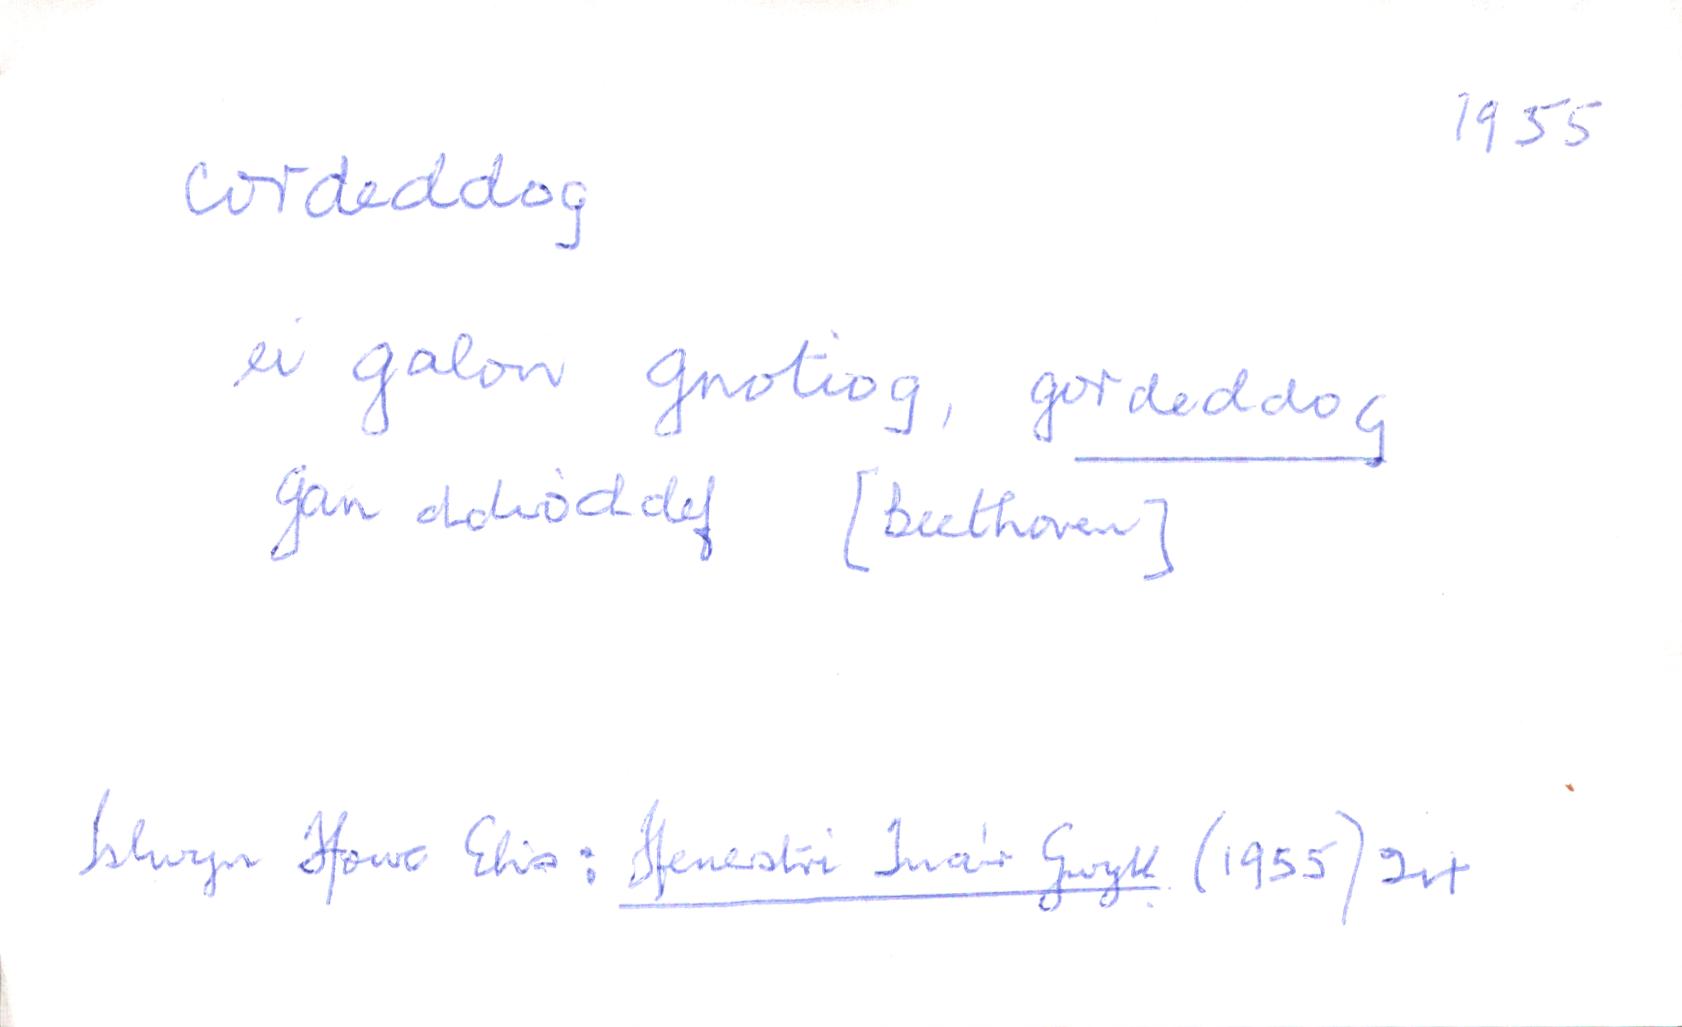 1955
cordeddog
ei galon gnotiog, gordeddog
gan ddioddef [Beethoven]
Islwyn Ffowc Elis: Ffenestri Tua'r Gwyll (1955) 24